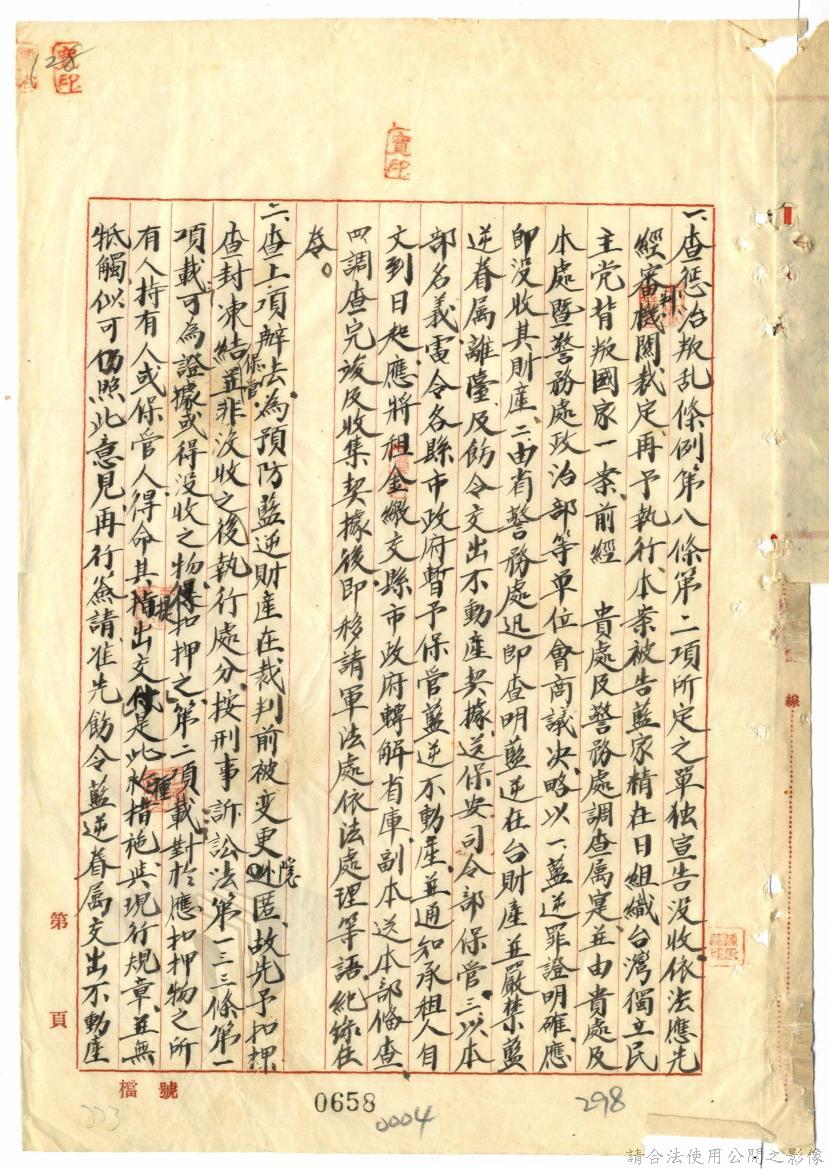 一、查惩治叛乱條例第八條第二項所定之單独宣告没收依法應先
經審判機関裁定再予執行本案被告藍家精在日組織台灣獨立民
主党背叛國家一案前經　貴處及警務處調查属寔並由貴處及
本處暨警務處政治部等单位會商議决略以一、藍逆罪證明確應
即没收其財産二、由省警務處迅即查明藍逆在台財産並嚴禁藍
逆眷属離臺及飭令交出不動產契據送保安司令部保管三、以本
部名義電令各縣市政府暫予保管藍逆不動產並通知承租人自
文到日起應將租金繳交縣市政府轉解省庫副本送本部俻查
四、調查完竣及收集契據後即移請軍法處依法處理等語紀錄在
卷。
二、查上項辦法為預防藍逆財産在裁判前被变更隐匿故先予扣押
查封凍結保管並非没收之後執行處分按刑事訴訟法第一三三條第一
項載可為證據或得没收之物得扣押之第二項載對於應扣押物之所
有人持有人或保管人得命其提出交付是此種措施與現行規章並無
牴觸似可仍照此意見再行簽請准先飭令藍逆眷属交出不動產
第　頁
檔　號
線
0658
0004
298
223
128
請合法使用公開之影像